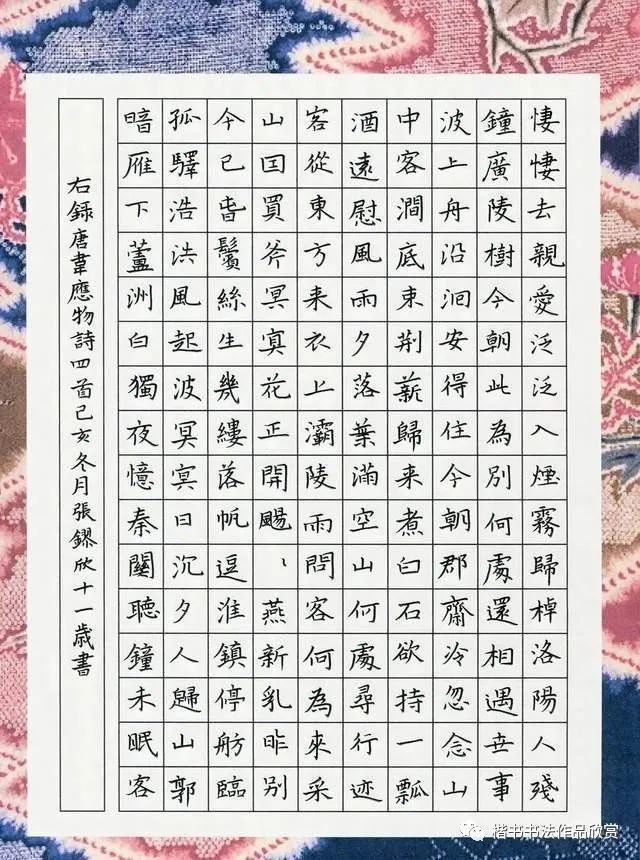 悽悽去親愛泛泛入煙霧歸棹洛陽人殘
鐘廣陵樹今朝此為別何處還相遇世事
波上舟沿洄安得住今朝郡齋冷忽念山
中客澗底束荆薪歸来煮白石欲持一瓢
酒遠慰風雨夕落葉滿空山何處尋行迹
客從東方来衣上灞陵雨問客何為來采
山因買斧冥冥花正開颺〻燕新乳昨别
今已春鬢絲生幾縷落帆逗淮鎮停舫臨
孤驛浩洪風起波冥冥日沉夕人歸山郭
暗雁下蘆洲白獨夜憶秦關聽鐘未眠客
右錄唐韋應物詩四首己亥冬月張鏐欣十一歲書
楷书书法作品欣赏